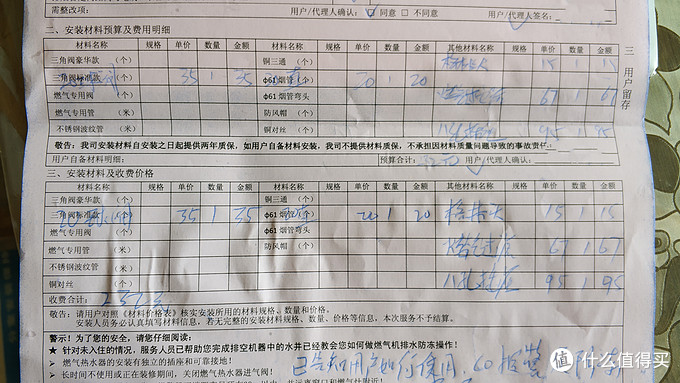 需整改项： 用户/代理人确认：☑ 同意 □ 不同意 用户/代理人签名：
二、安装材料预算及费用明细
材料名称 规格 单价 数量 金额 材料名称 规格 单价 数量 金额 其他材料名称 单价 数量 金额
三角阀豪华款（个） 铜三通（个） 15 1 15
三角阀标准款（个） 35 1 35 Φ61 烟管（个） 20 1 20
燃气专用阀（个） Φ61 烟管弯头 67 1 67
燃气专用管（米） 防风帽（个）
不锈钢波纹管（米） 铜对丝（个） 95 1 95
敬告：我司安装材料自安装之日起提供两年质保，如用户自备材料安装，我司不提供材料质保，不承担因材料质量问题导致的事故责任
用户自备材料明细： 预算合计： 用户/代理人确认：
三、安装材料及收费价格
材料名称 规格 单价 数量 金额 材料名称 规格 单价 数量 金额 其他材料名称 单价 数量 金额
三角阀豪华款（个） 铜三通（个）
三角阀标准款（个） 35 1 35 Φ61 烟管（个） 20 1 20 15 1 15
燃气专用阀（个） Φ61 烟管弯头（个）
燃气专用管（米） 防风帽（个） 67 1 67
不锈钢波纹管（米）
铜对丝（个） 95 1 95
收费合计： 232元
敬告：请用户对照《材料价格表》核实安装所用的材料规格、数量和价格。
安装人员务必认真填写材料信息，若无完整的安装材料规格、数量、价格等信息，本次服务不予结算。
警示！为了您的安全，请仔细阅读：
★ 针对未入住的情况，服务人员已帮助您完成排空机器中的水并已经教会您如何做燃气机排水防冻操作！
➢ 燃气热水器的安装有独立的插座和可靠接地！
➢ 长时间不使用或正在装修期间，关闭燃气热水器进气阀！
已告知用户如何使用，CO报警
三 用户留存
值 什么值得买